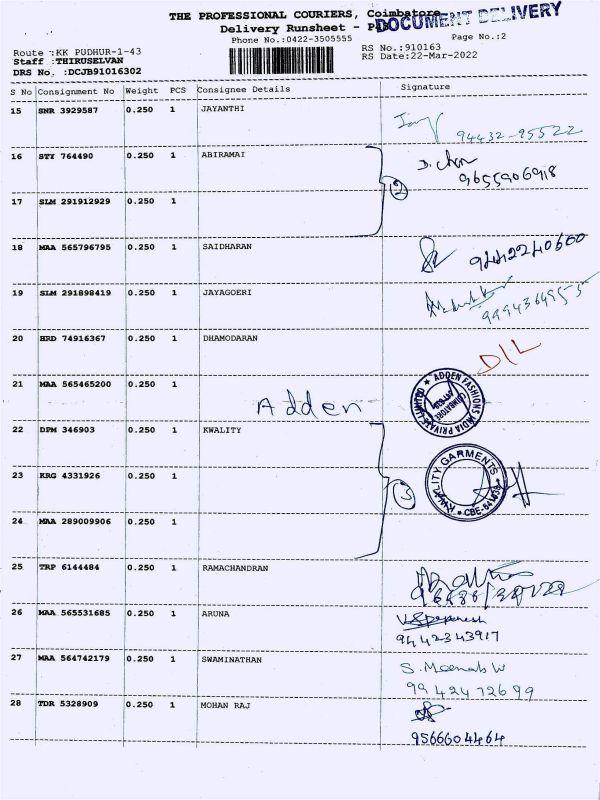 THE PROFESSIONAL COURIERS, Coimbatore
DOCUMENT DELIVERY
Delivery Runsheet -
Phone No.:0422-3505555
Page No.:2
Route :KK PUDHUR-1-43
RS No.:910163
Staff :THIRUSELVAN
RS Date:22-Mar-2022
DRS No. :DCJB91016302
S No Consignment No Weight PCS Consignee Details Signature
15 SNR 3929587 0.250 1 JAYANTHI
94432-95522
16 STY 764490 0.250 1 ABIRAMAI
9655906918
2
17 SLM 291912929 0.250 1
18 MAA 565796795 0.250 1 SAIDHARAN
9442240600
19 SLM 291898419 0.250 1 JAYAGOERI
9994364955
20 HRD 74916367 0.250 1 DHAMODARAN
D/L
21 MAA 565465200 0.250 1
Adden
ADDEN FASHIONS INDIA PRIVATE LIMITED
22 DPM 346903 0.250 1 KWALITY
KWALITY GARMENTS
23 KRG 4331926 0.250 1
3
24 MAA 289009906 0.250 1
25 TRP 6144484 0.250 1 RAMACHANDRAN
26 MAA 565531685 0.250 1 ARUNA
9442343917
27 MAA 564742179 0.250 1 SWAMINATHAN
9942472699
28 TDR 5328909 0.250 1 MOHAN RAJ
9566604464